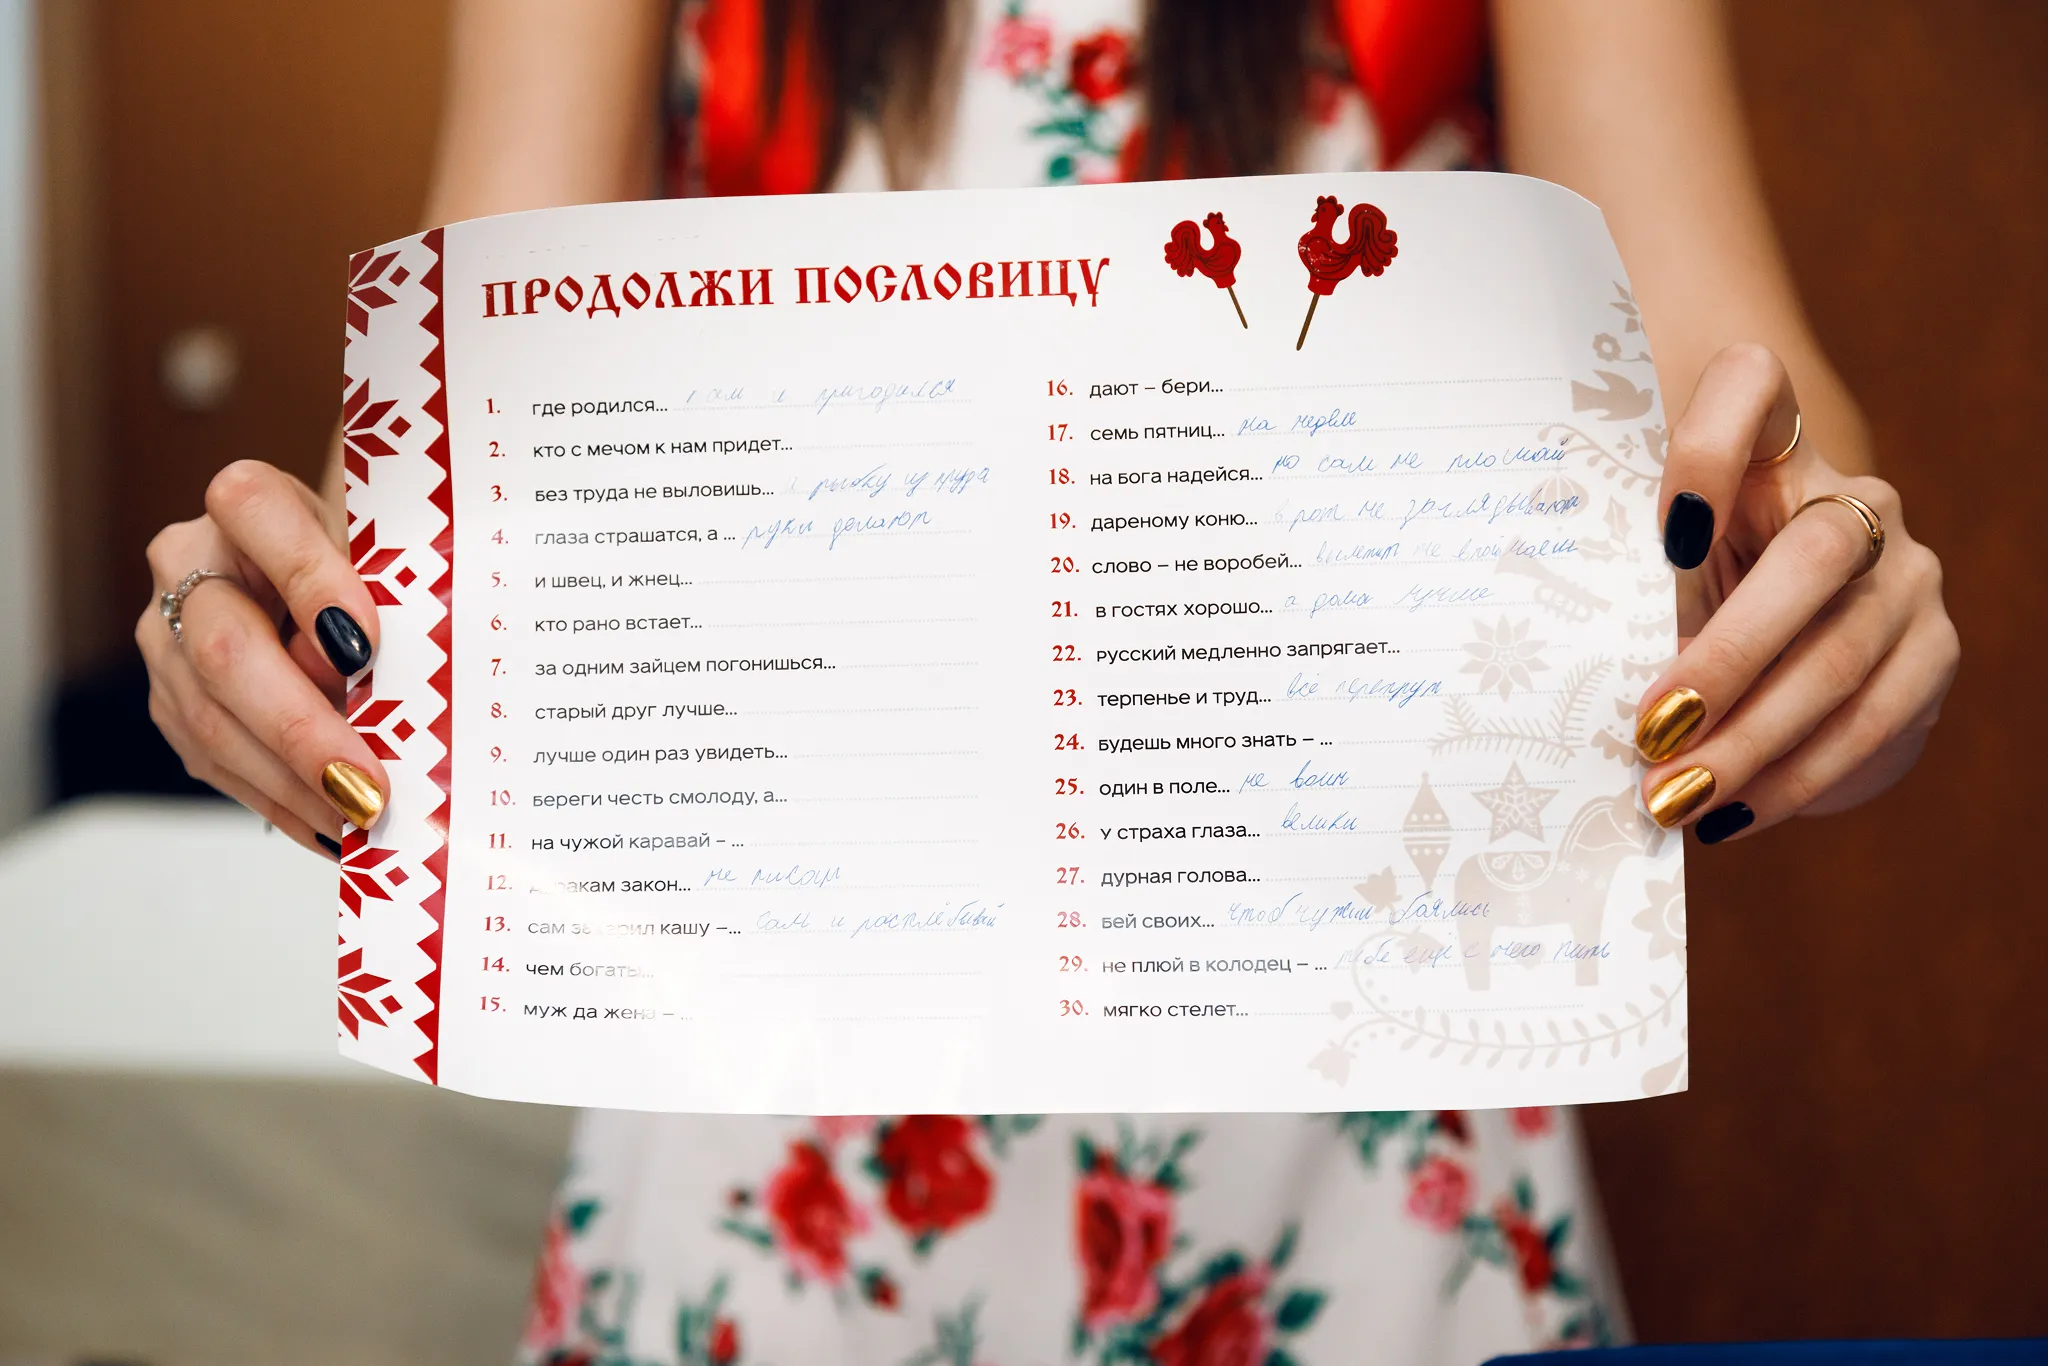 ПРОДОЛЖИ ПОСЛОВИЦУ
1. где родился... там и пригодился
2. кто с мечом к нам придет...
3. без труда не выловишь... и рыбку из пруда
4. глаза страшатся, а ... руки делают
5. и швец, и жнец...
6. кто рано встает...
7. за одним зайцем погонишься...
8. старый друг лучше...
9. лучше один раз увидеть...
10. береги честь смолоду, а...
11. на чужой каравай – ...
12. дуракам закон... не писан
13. сам заварил кашу –... сам и расхлёбывай
14. чем богаты...
15. муж да жена – ...
16. дают – бери...
17. семь пятниц... на неделе
18. на бога надейся... но сам не плошай
19. дареному коню... в рот не заглядывают
20. слово – не воробей... вылетит не поймаешь
21. в гостях хорошо... а дома лучше
22. русский медленно запрягает...
23. терпенье и труд... всё перетрут
24. будешь много знать – ...
25. один в поле... не воин
26. у страха глаза... велики
27. дурная голова...
28. бей своих... чтоб чужие боялись
29. не плюй в колодец – ... тебе ещё с него пить
30. мягко стелет...